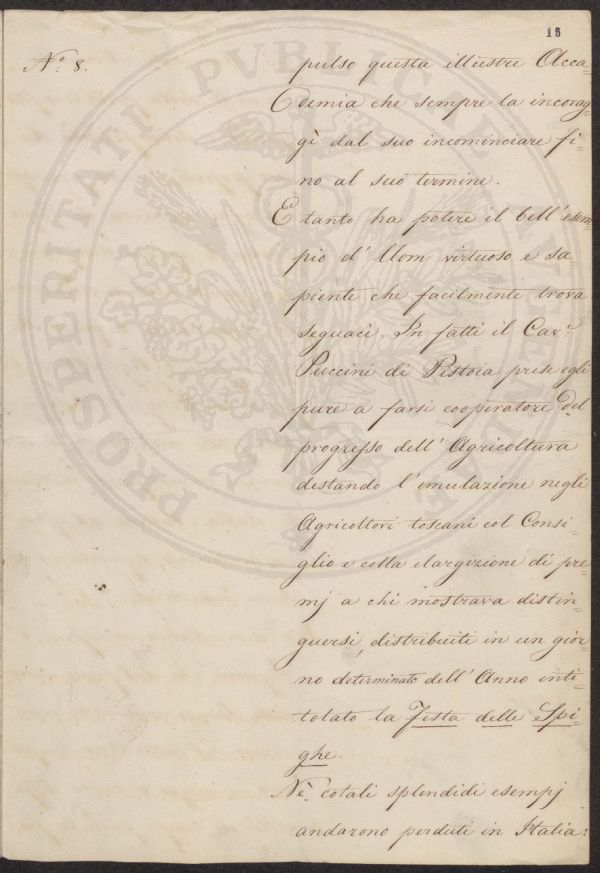 15
N.º 8.
pulso questa illustre Acca=
demia che sempre la incorag=
gì dal suo incominciare fi=
no al suo termine.
E tanto ha potere il bell' esem=
pio d' Uom virtuoso e sa=
piente che facilmente trova
seguaci. In fatti il Cav.r
Puccini di Pistoia prese egli
pure a farsi cooperatore del
progresso dell' Agricoltura
destando l' emulazione negli
Agricoltori toscani col Consi=
glio e colla elargizione di pre=
mj a chi mostrava distin=
guersi, distribuiti in un gior=
no determinato dell' Anno inti=
tolato la Festa delle Spi=
ghe.
Nè cotali splendidi esempj
andarono perduti in Italia:
PROSPERITATI PUBLICAE AUGENDAE